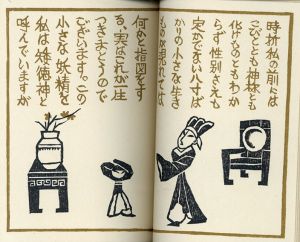 時折私の前には
こびとも神様とも
化けものともわか
らず性別さえも
定かでない八寸ば
かりの小さな生き
ものが現れては
何かと指図をす
る、実はこれが一生
つきまとうので
ございます。この
小さな妖精を
私は矮徳神と
呼んでいますが